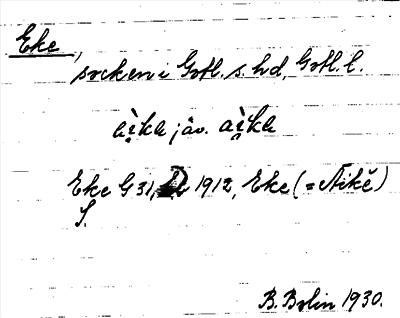 Eke,
socken i Gotl. s. hd, Gotl. l.
ài̯ka jäv. ài̯ka
Eke G 31, 1912, Eke (= Aikē)
S.
B. Bolin 1930.